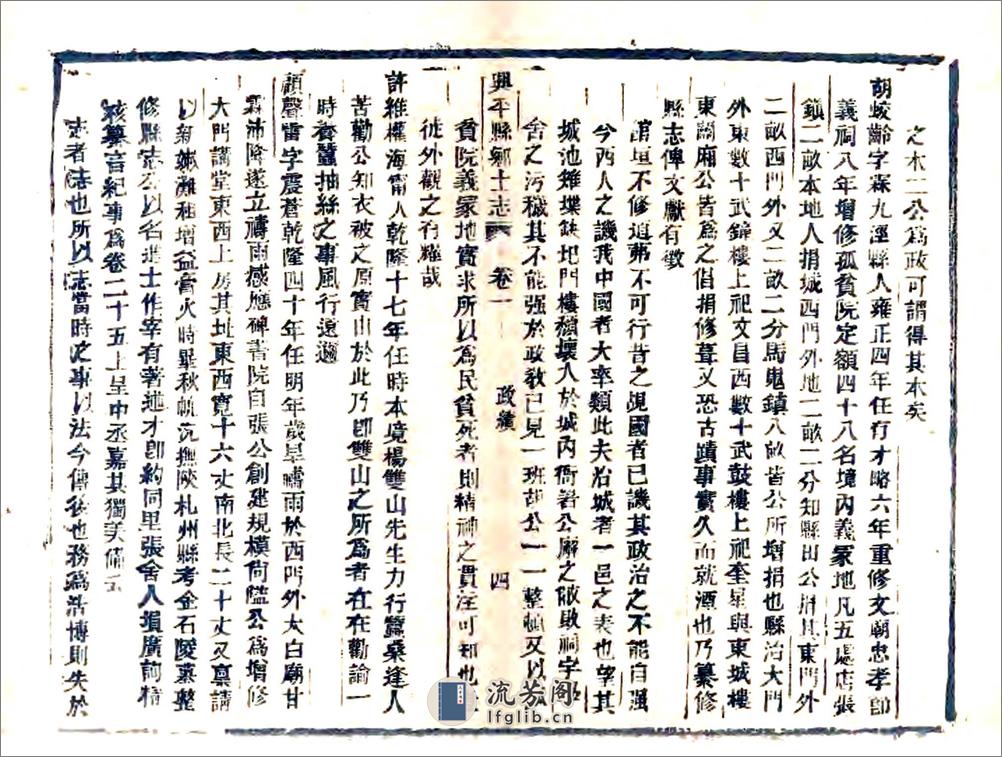 之本二公爲政可謂得其本矣
胡蛟齡字森九涇縣人雍正四年任有才略六年重修文廟忠孝節
義祠八年增修孤貧院定額四十八名境內義冢地凡五處店張
鎮二畝本地人捐城西門外地二畝二分知縣田公捐其東門外
二畝西門外又二畝二分馬嵬鎮八畝皆公所增捐也縣治大門
外東數十武鐘樓上祀文昌西數十武鼓樓上祀奎星與東城樓
東關廂公皆爲之倡捐修葺又恐古蹟事實久而就湮也乃纂修
縣志俾文獻有徵
館垣不修道茀不可行昔之覘國者已譏其政治之不能自强
今西人之譏我中國者大率類此夫治城者一邑之表也望其
城池雉堞缺圮門樓穨壞人於城內衙署公廨之敝敗祠宇
舍之污穢其不能强於政敎已見一班胡公一一整頓又以
貧院義冢地實求所以為民貧死者則精神之貫注可知也
徒外觀之有耀哉
興平縣鄉土志 卷一 政績 四
許維權海甯人乾隆十七年任時本境楊雙山先生力行蠶桑逢人
苦勸公知衣被之原實由於此乃卽雙山之所爲者在在勸諭一
時養蠶抽絲之事風行遠邇
顧聲雷字震蒼乾隆四十年任明年歲旱禱雨於西門外太白廟甘
霖沛降遂立禱雨感應碑書院自張公創建規模尙隘公爲增修
大門講堂東西上房其址東西寛十六丈南北長二十丈又稟請
以新嫩灘租增益膏火時畢秋帆沅撫陝札州縣考金石陵墓整
修縣志公以名進士作宰有著述才卽約同里張舍人塤廣詢精
核纂言紀事爲卷二十五上呈中丞嘉其獨美備云
志者法也所以志當時之事以法今傳後也務爲浩博則失於
流芳阁
lfglib.cn